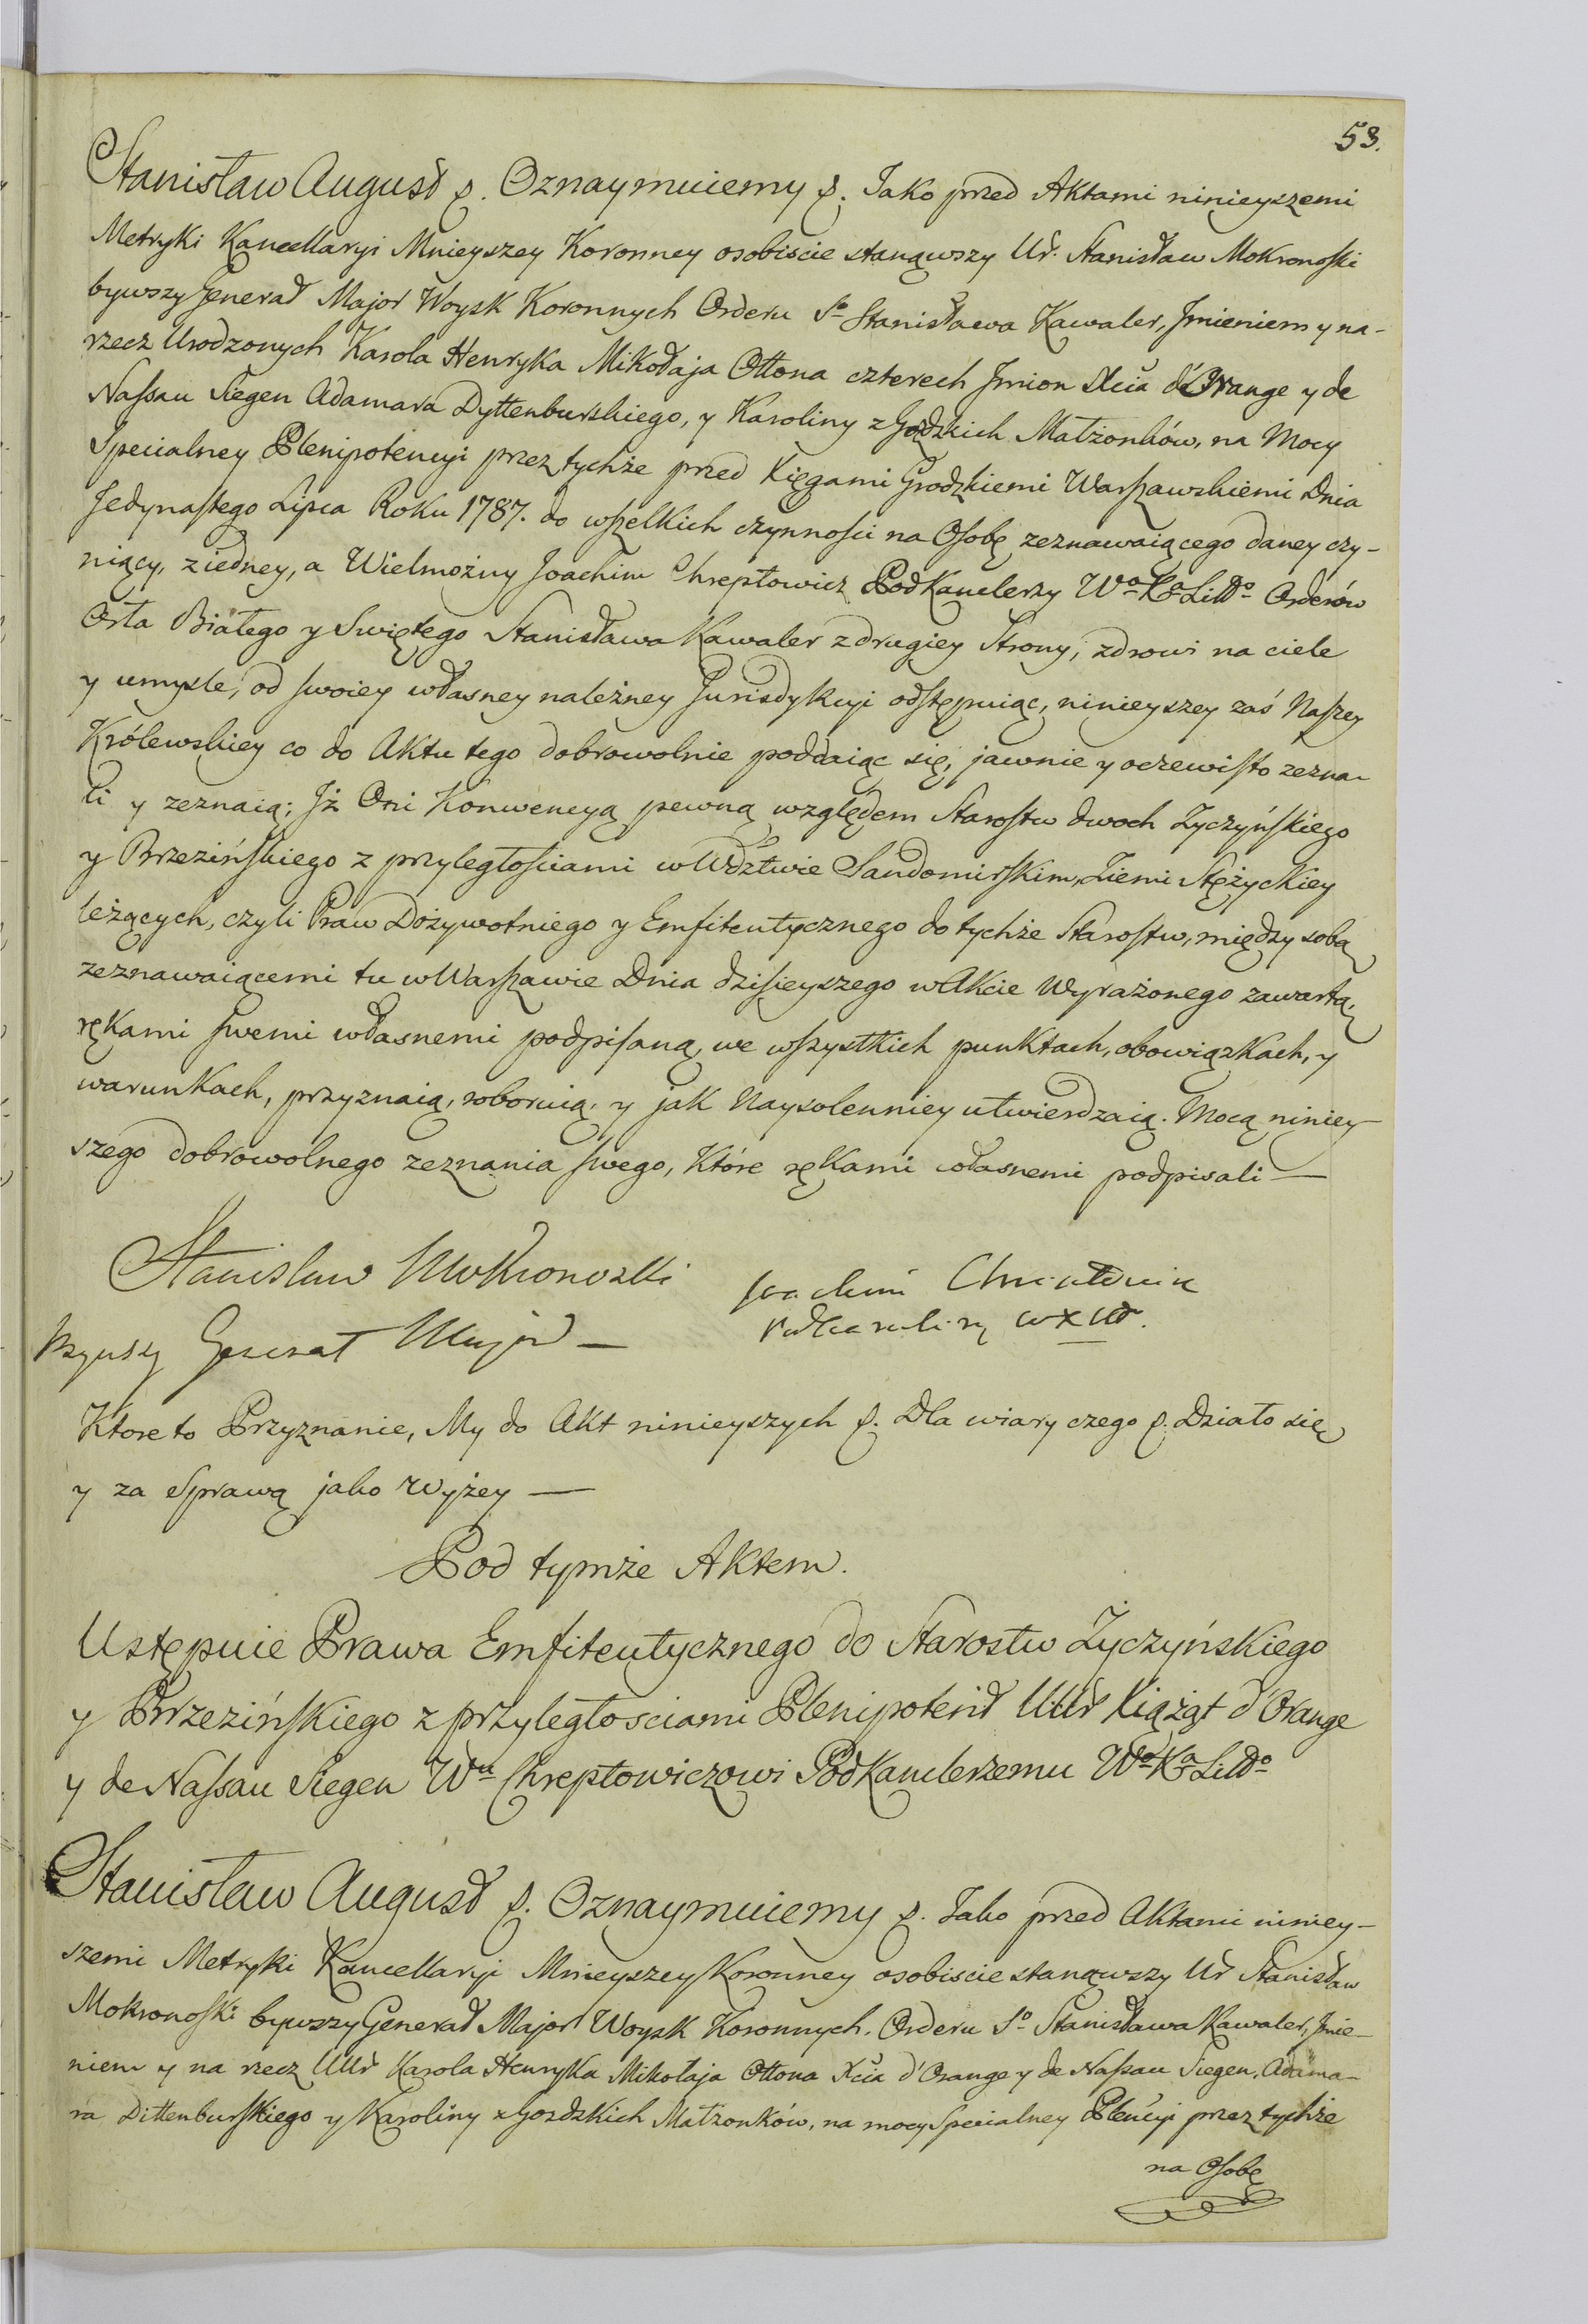 53.
Stanisław August &. Oznaymuiemy &. Jako przed Aktami ninieyszemi
Metryki Kancellaryi Mnieyszey Koronney osobiscie stanąwszy Ur. Stanisław Mokronoski
bywszy Generał Major Woysk Koronnych Orderu Sº Stanisława Kawaler, Jmieniem y na-
rzecz Urodzonych Karola Henryka Mikołaja Ottona czterech Jmion Xcia d'Orange y de
Nassau Siegen Adamara Dyttenburskiego, y Karoliny z Gozdzkich Małżonków, na Mocy
Specialney Plenipotencyi przez tychże przed Xięgami Grodzkiemi Warszawskiemi Dnia
Jedynastego Lipca Roku 1787. do wszelkich czynnosci na Osobę zeznawaiącego daney czy-
niący, z iedney, a Wielmożny Joachim Chreptowicz PodKanclerzy Wº Xª Littº Orderów
Orła Białego y Swiętego Stanisława Kawaler z drugiey Strony, zdrowi na ciele
y umysle, od swoiey własney należney Jurisdykcyi odstępuiąc, ninieyszey zaś Naszey
Królewskiey co do Aktu tego dobrowolnie poddaiąc się, jawnie y oczewisto zezna-
li y zeznaią; Jż Oni Konwencyą pewną względem Starostw dwoch Zyczyńskiego
y Brzezińskiego z przyległościami w Wdztwie Sandomirskim, Ziemi Stężyckiey
leżących, czyli Praw Dożywotniego y Emfiteutycznego do tychże Starostw, między sobą
zeznawaiącemi tu w Warszawie Dnia dzisieyszego w Akcie Wyrażonego zawartą,
rękami swemi własnemi podpisaną, we wszystkich punktach, obowiązkach, y
warunkach, przyznaią, roboruią, y jak Naysolenniey utwierdzaią. Mocą niniey-
szego dobrowolnego zeznania swego, Które rękami własnemi podpisali —
Stanislaw Mokronoski
Joachim Chreptowicz
Podkanclerzy WXLitt.
Bywszy Generał Major —
Ktore to Przyznanie, My do Akt ninieyszych &. Dla wiary czego &. Działo się
y za Sprawą jako wyżey —
Pod tymże Aktem.
Ustępuie Prawa Emfiteutycznego do Starostw Życzyńskiego
y Brzezińskiego z przyległosciami Plenipotent UUr Xiążąt d'Orange
y de Nassau Siegen Wu Chreptowiczowi PodKanclerzemu Wº Xª Littº
Stanisław August &. Oznaymuiemy &. Jako przed Aktami niniey-
szemi Metryki Kancellaryi Mnieyszey Koronney osobiscie stanąwszy Ur Stanisław
Mokronoski bywszy Generał Major Woysk Koronnych. Orderu Sº Stanisława Kawaler, Jmie-
niem y na rzecz UUr Karola Henryka Mikołaja Ottona Xcia d'Orange y de Nassau Siegen, Adama-
ra Dittenburskiego y Karoliny z Gozdzkich Małżonków, na mocy Specialney Plencyi przez tychże
na Osobę